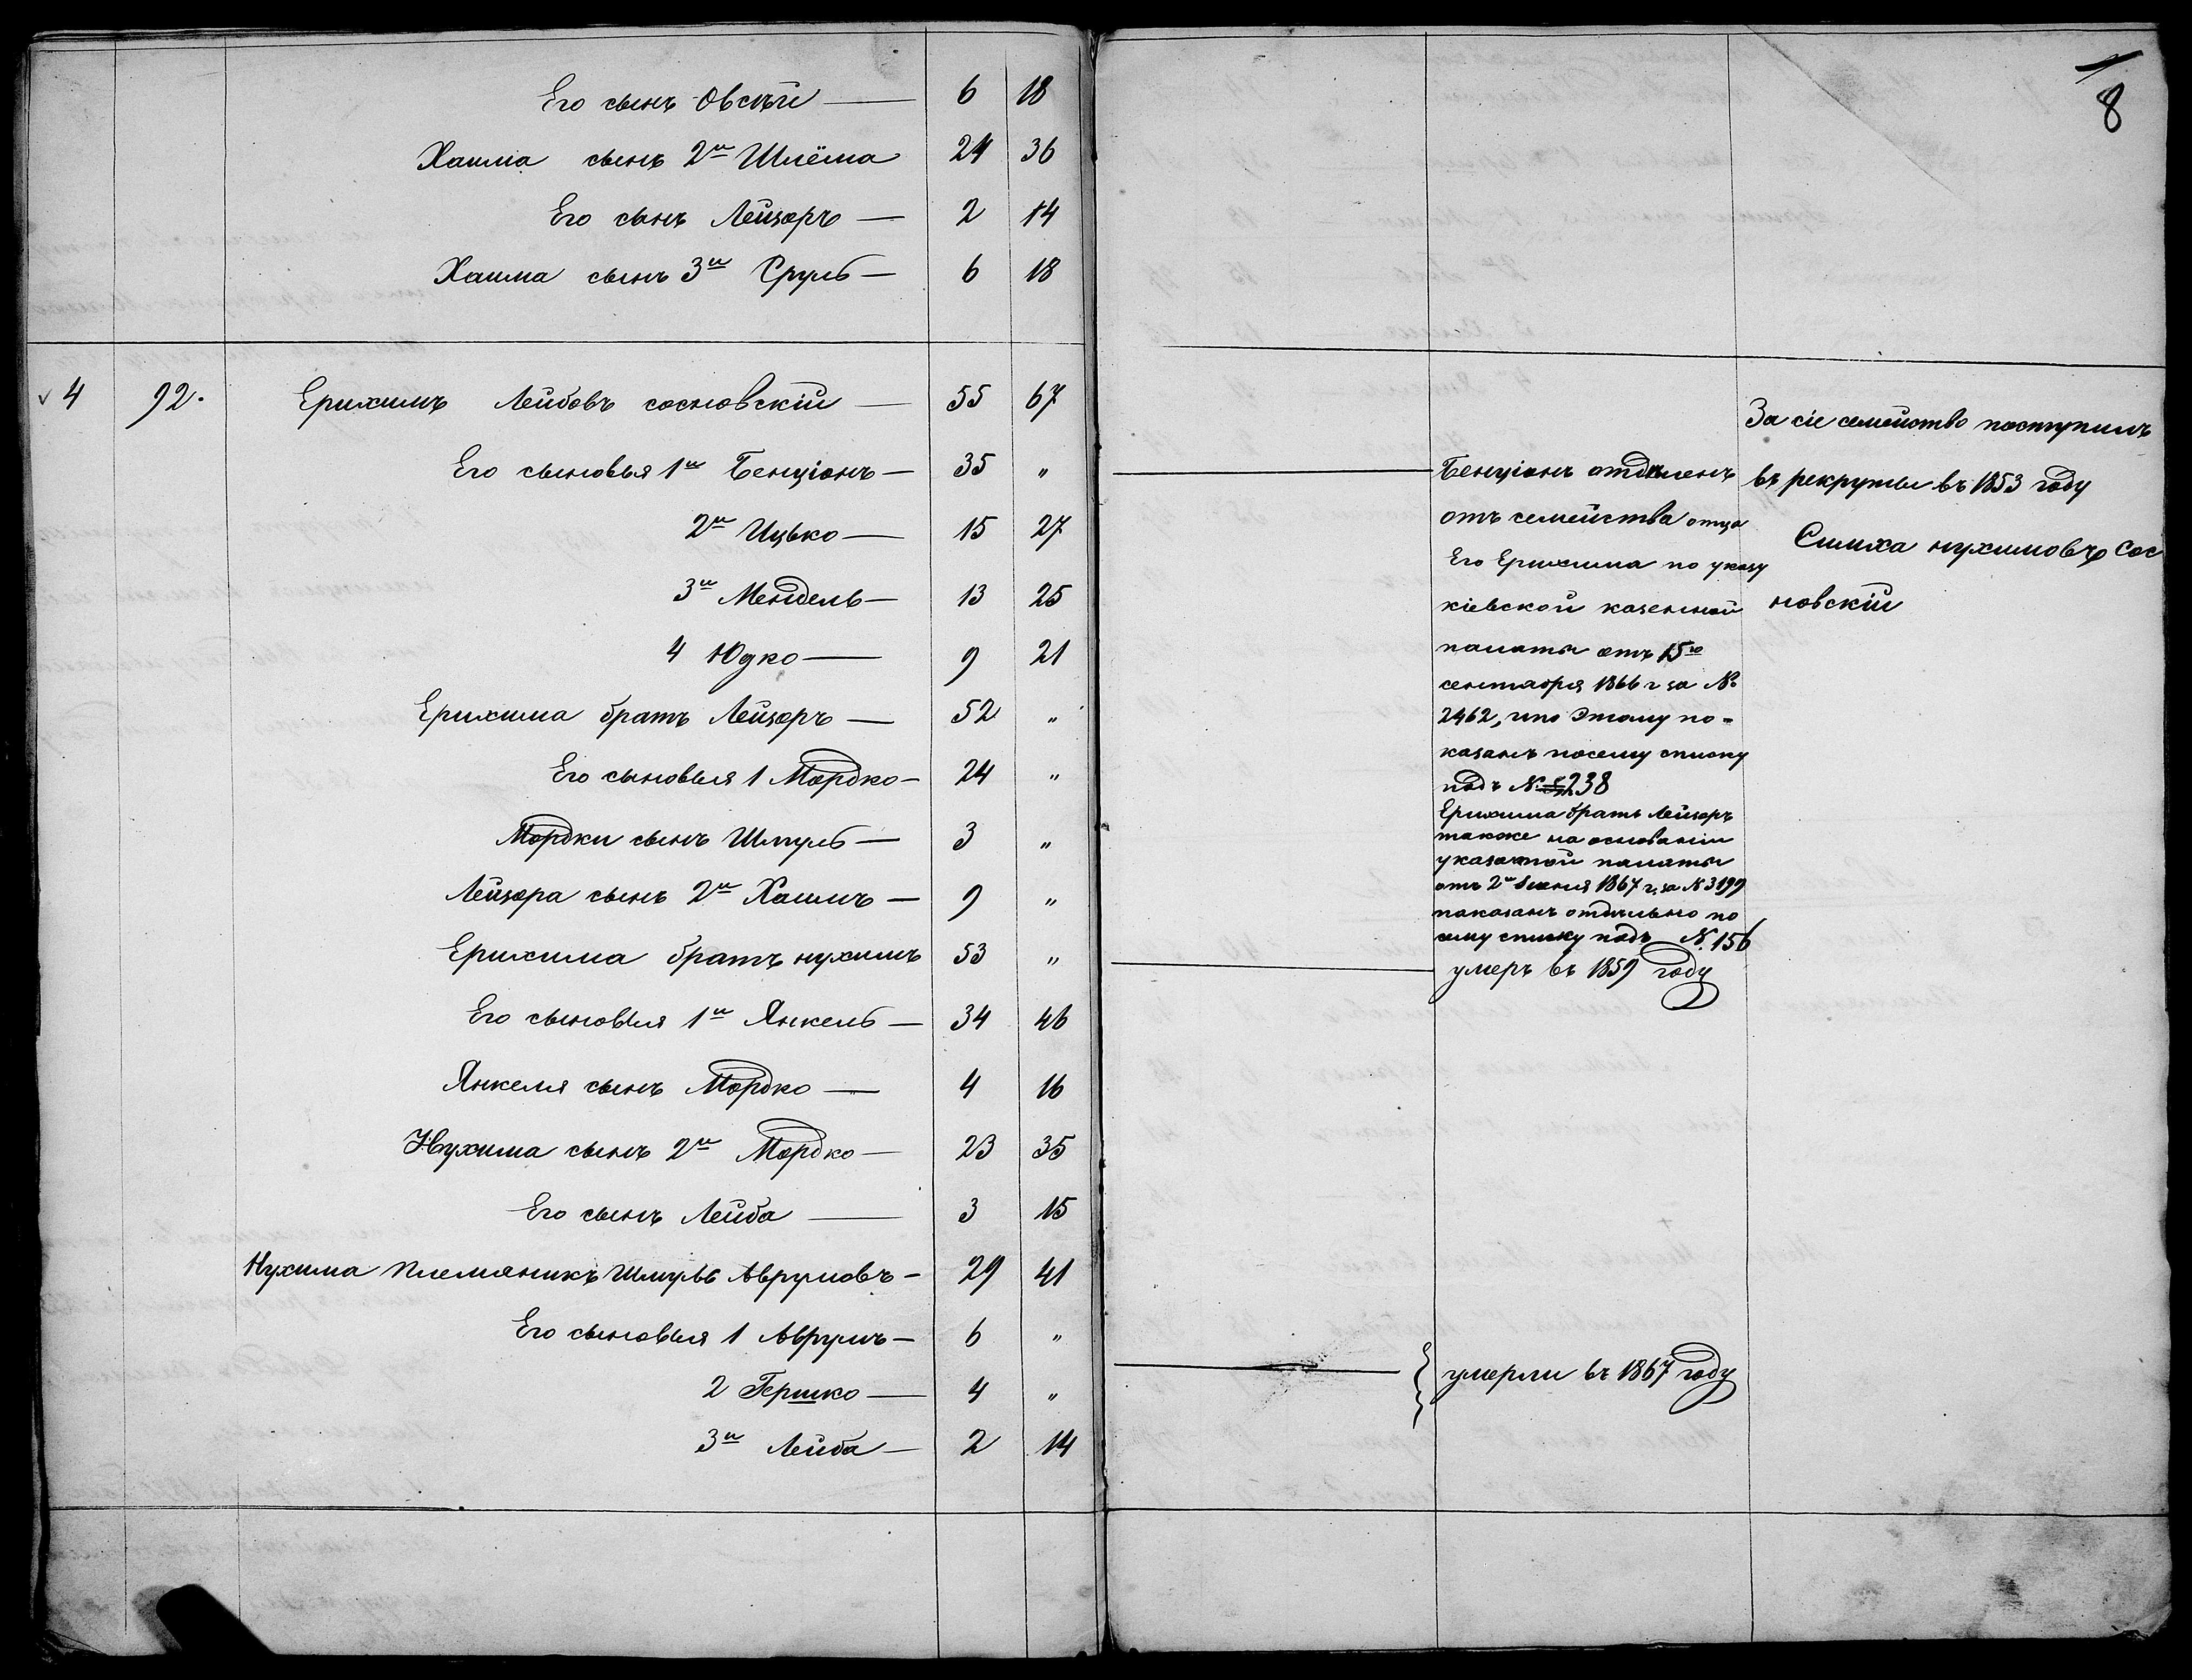 Его сынъ Овсѣй — 6 18
Хаима сынъ 2й Шлёма 24 36
Его сынъ Лейзоръ — 2 14
Хаима сынъ 3й Сруль — 6 18
4 92. Ерихимъ Лейбовъ сосновскій — 55 67
Его сыновья 1й Бенціонъ — 35 "
2й Ицько — 15 27
3й Мендель — 13 25
4 Юдко — 9 21
Ерихима братъ Лейзоръ — 52 "
Его сыновья 1 Мордко — 24 "
Мордки сынъ Шмуль — 3 "
Лейзора сынъ 2й Хаимъ — 9 "
Ерихима братъ нухимъ 53 "
Его сыновья 1й Янкель — 34 46
Янкеля сынъ Мордко — 4 16
Нухима сынъ 2й Мордко — 23 35
Его сынъ Лейба — 3 15
Нухима племяникъ Шмуль Аврумовъ — 29 41
Его сыновья 1 Аврумъ — 6 "
2 Гершко — 4 "
3й Лейба — 2 14
8
Бенціонъ отдѣленъ
отъ семейства отца
Его Ерихима по указу
кіевской казенной
палаты отъ 15го
сентября 1866 г за №
2462, и по Этому по-
казанъ посему списку
подъ № 238
Ерихима братъ Лейзоръ
также на основаніи
указанной палаты
отъ 2й Іюня 1867 г. за № 3199
показанъ отдѣльно по
сему списку подъ №. 156
умеръ въ 1859 году
умерли въ 1867 году
За сіе семейство поступилъ
въ рекруты въ 1853 году
Симха нухимовъ сос
новскій